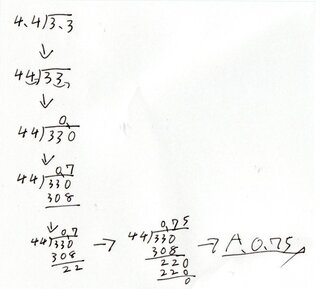 4.4)3.3
↓
44)33.
↓
0.
44)330
↓
0.7
44)330
308
↓
0.7
44)330
308
22
→
0.75
44)330
308
220
220
0
→ A. 0.75